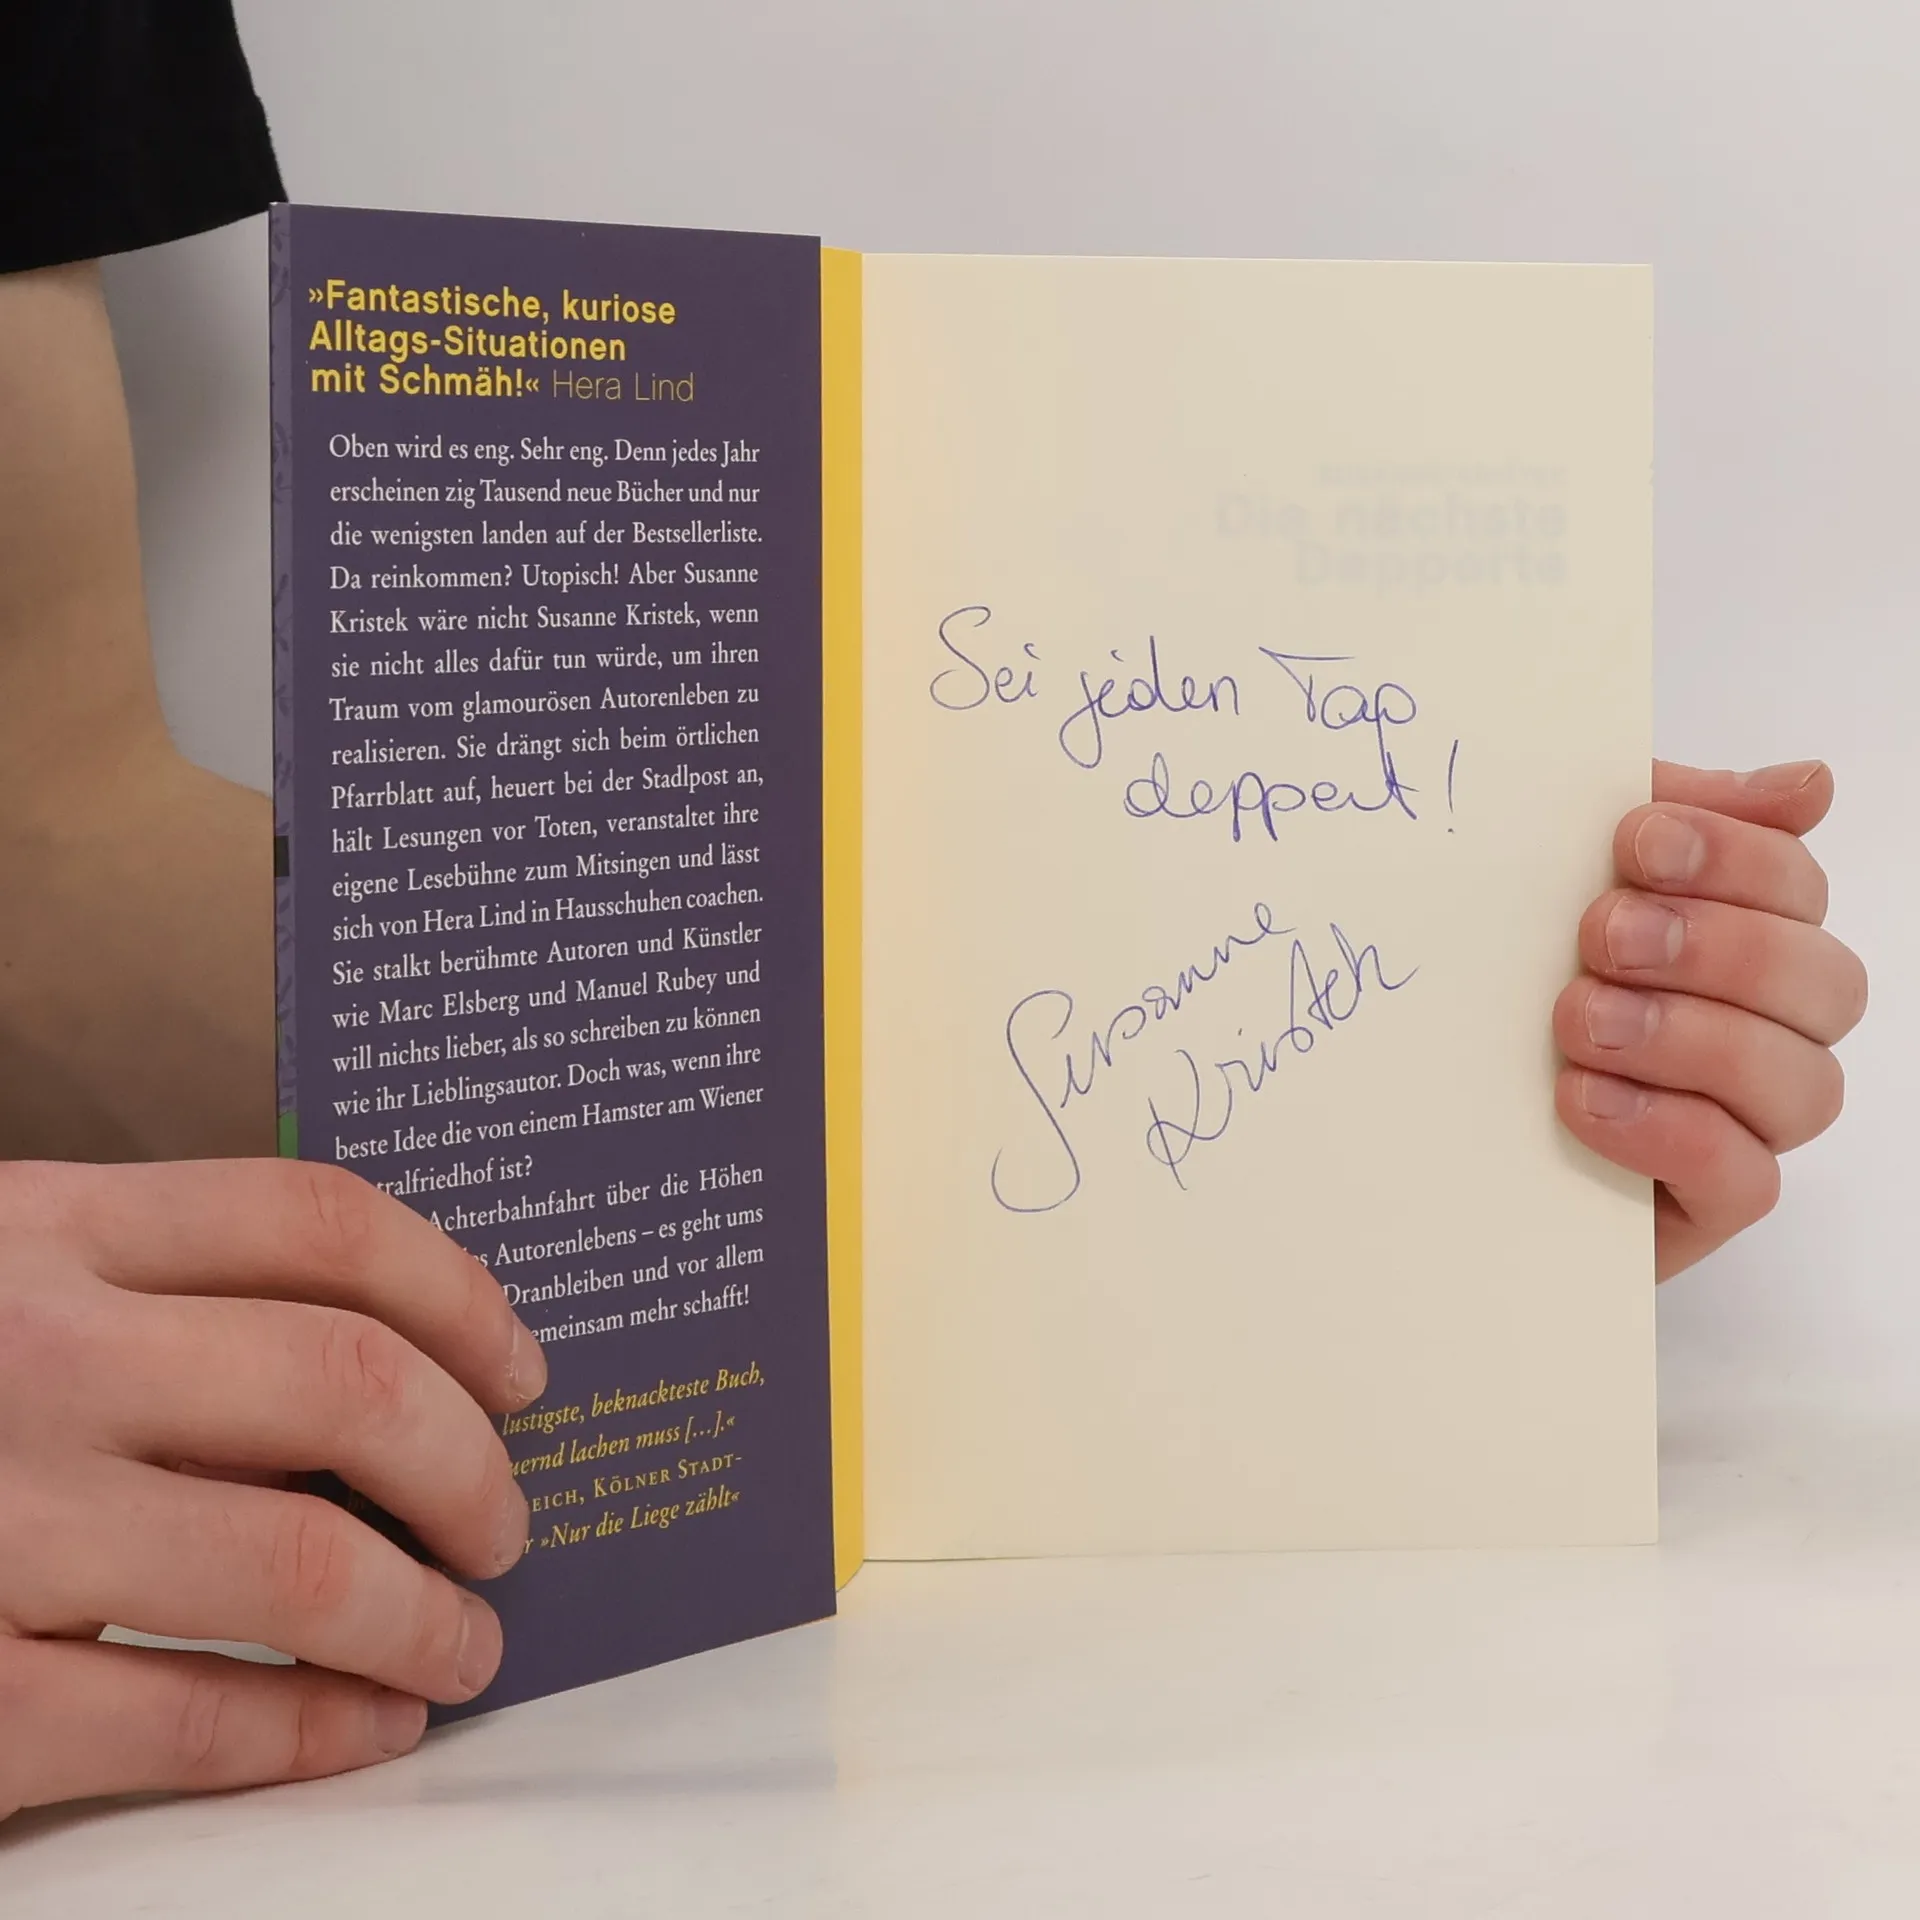 »Fantastische, kuriose
Alltags-Situationen
mit Schmäh!« Hera Lind
Oben wird es eng. Sehr eng. Denn jedes Jahr
erscheinen zig Tausend neue Bücher und nur
die wenigsten landen auf der Bestsellerliste.
Da reinkommen? Utopisch! Aber Susanne
Kristek wäre nicht Susanne Kristek, wenn
sie nicht alles dafür tun würde, um ihren
Traum vom glamourösen Autorenleben zu
realisieren. Sie drängt sich beim örtlichen
Pfarrblatt auf, heuert bei der Stadlpost an,
hält Lesungen vor Toten, veranstaltet ihre
eigene Lesebühne zum Mitsingen und lässt
sich von Hera Lind in Hausschuhen coachen.
Sie stalkt berühmte Autoren und Künstler
wie Marc Elsberg und Manuel Rubey und
will nichts lieber, als so schreiben zu können
wie ihr Lieblingsautor. Doch was, wenn ihre
beste Idee die von einem Hamster am Wiener
tralfriedhof ist?
Achterbahnfahrt über die Höhen
s Autorenlebens – es geht ums
Dranbleiben und vor allem
emeinsam mehr schafft!
lustigste, beknackteste Buch,
uernd lachen muss [...].«
EICH, KÖLNER STADT-
r »Nur die Liege zählt«
Die nächste
Depperte
Sei jeden Tag
deppert!
Susanne
Kristek